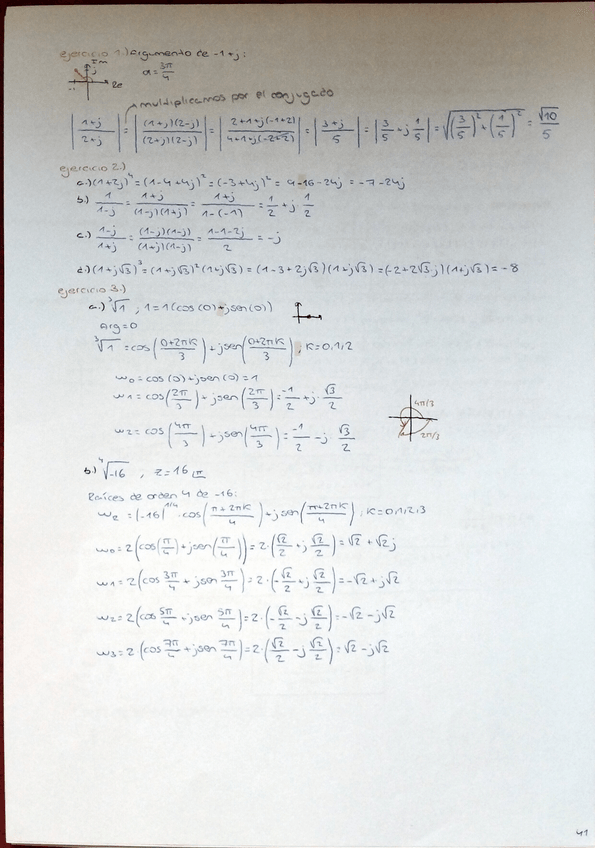 ejercicio 1.) Argumento de -1+j:
Im
j
-1
Re
α = 3π/4
multiplicamos por el conjugado
|1+j / 2+j| = |(1+j)(2-j) / (2+j)(2-j)| = |2+1+j(-1+2) / 4+1+j(-2+2)| = |3+j / 5| = |3/5 + j 1/5| = √((3/5)² + (1/5)²) = √10/5
ejercicio 2.)
a.) (1+2j)⁴ = (1-4+4j)² = (-3+4j)² = 9-16-24j = -7-24j
b.) 1/(1-j) = (1+j)/((1-j)(1+j)) = (1+j)/(1-(-1)) = 1/2 + j · 1/2
c.) (1-j)/(1+j) = (1-j)(1-j)/((1+j)(1-j)) = (1-1-2j)/2 = -j
d.) (1+j√3)³ = (1+j√3)²(1+j√3) = (1-3+2j√3)(1+j√3) = (-2+2√3j)(1+j√3) = -8
ejercicio 3.)
a.) ³√1 , 1 = 1(cos(0)+jsen(0))
Arg = 0
³√1 = cos((0+2πK)/3) + jsen((0+2πK)/3) , K=0,1,2
w0 = cos(0)+jsen(0) = 1
w1 = cos(2π/3) + jsen(2π/3) = -1/2 + j · √3/2
4π/3
w2 = cos(4π/3) + jsen(4π/3) = -1/2 - j · √3/2
2π/3
b.) ⁴√-16 , z = 16 π
Raíces de orden 4 de -16:
= |-16|^1/4 · cos((π+2πK)/4) + jsen((π+2πK)/4) ; K=0,1,2,3
w0 = 2(cos(π/4)+jsen(π/4)) = 2·(√2/2 + j √2/2) = √2 + √2j
w1 = 2(cos 3π/4 + jsen 3π/4) = 2·(-√2/2 + j √2/2) = -√2 + j√2
w2 = 2(cos 5π/4 + jsen 5π/4) = 2·(-√2/2 - j √2/2) = -√2 - j√2
w3 = 2(cos 7π/4 + jsen 7π/4) = 2·(√2/2 - j √2/2) = √2 - j√2
41